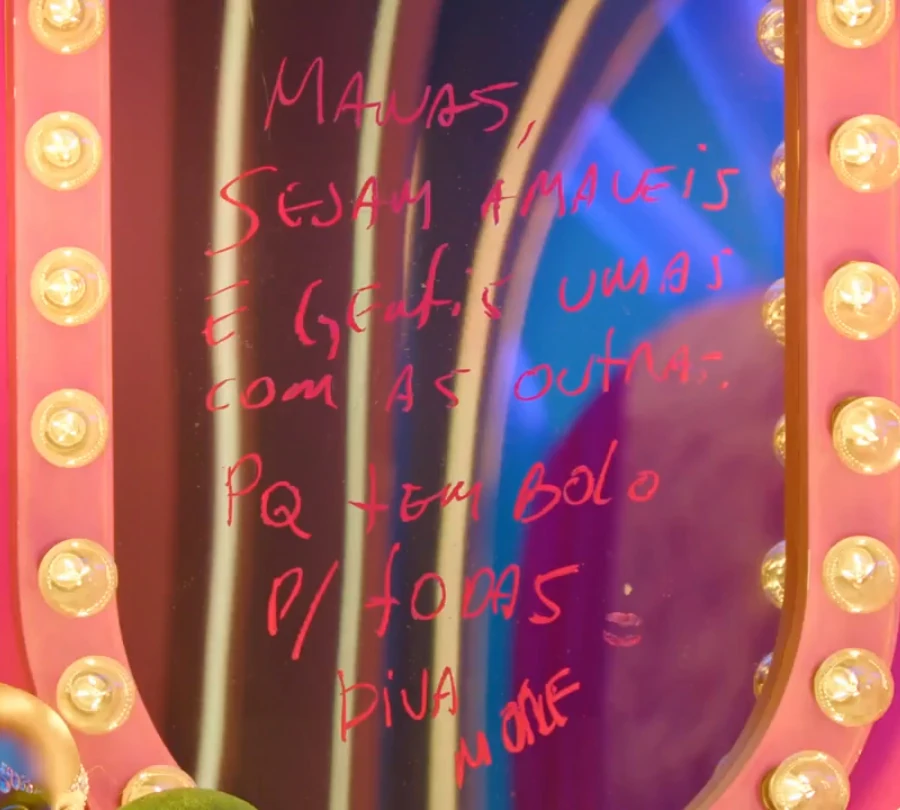 MANAS,
SEJAM AMAVEIS
E GENTIS UMAS
COM AS OUTRAS.
PQ TEM BOLO
P/ TODAS
DIVA
MORE